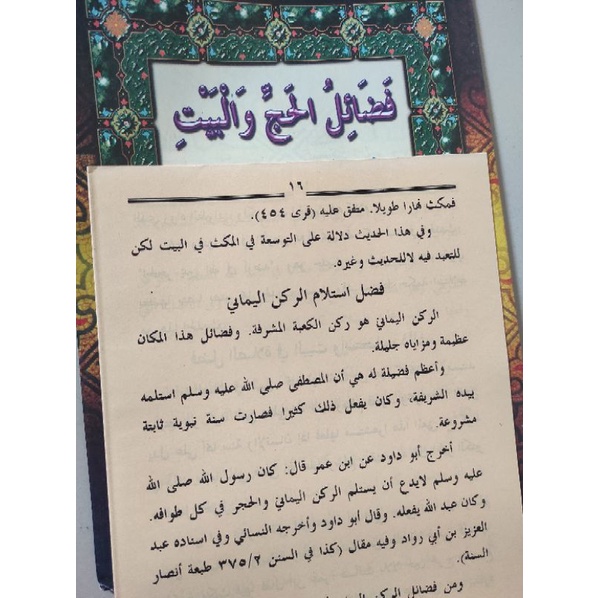 فَضَائِلُ الْحَجِّ وَالْبَيْتِ
١٦
فمكث نهارا طويلا. متفق عليه (قرى ٤٥٤).
وفي هذا الحديث دلالة على التوسعة في المكث في البيت لكن
للتعبد فيه لاللحديث وغيره.
فضل استلام الركن اليماني
الركن اليماني هو ركن الكعبة المشرفة. وفضائل هذا المكان
عظيمة ومزاياه جليلة.
وأعظم فضيلة له هي أن المصطفى صلى الله عليه وسلم استلمه
بيده الشريفة، وكان يفعل ذلك كثيرا فصارت سنة نبوية ثابتة
مشروعة.
أخرج أبو داود عن ابن عمر قال: كان رسول الله صلى الله
عليه وسلم لايدع أن يستلم الركن اليماني والحجر في كل طوافه.
وكان عبد الله يفعله. وقال أبو داود وأخرجه النسائي وفي اسناده عبد
العزيز بن أبي رواد وفيه مقال (كذا في السنن ٣٧٥/٢ طبعة أنصار
السنة).
ومن فضائل الركن